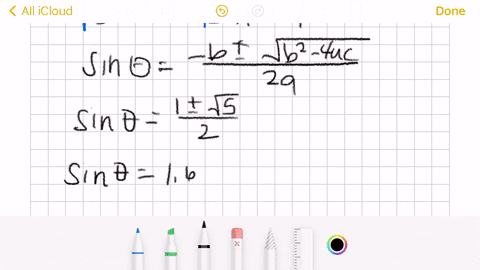 All iCloud Done
sin θ = -b ± √b² - 4ac / 2a
sin θ = 1 ± √5 / 2
sin θ = 1.6